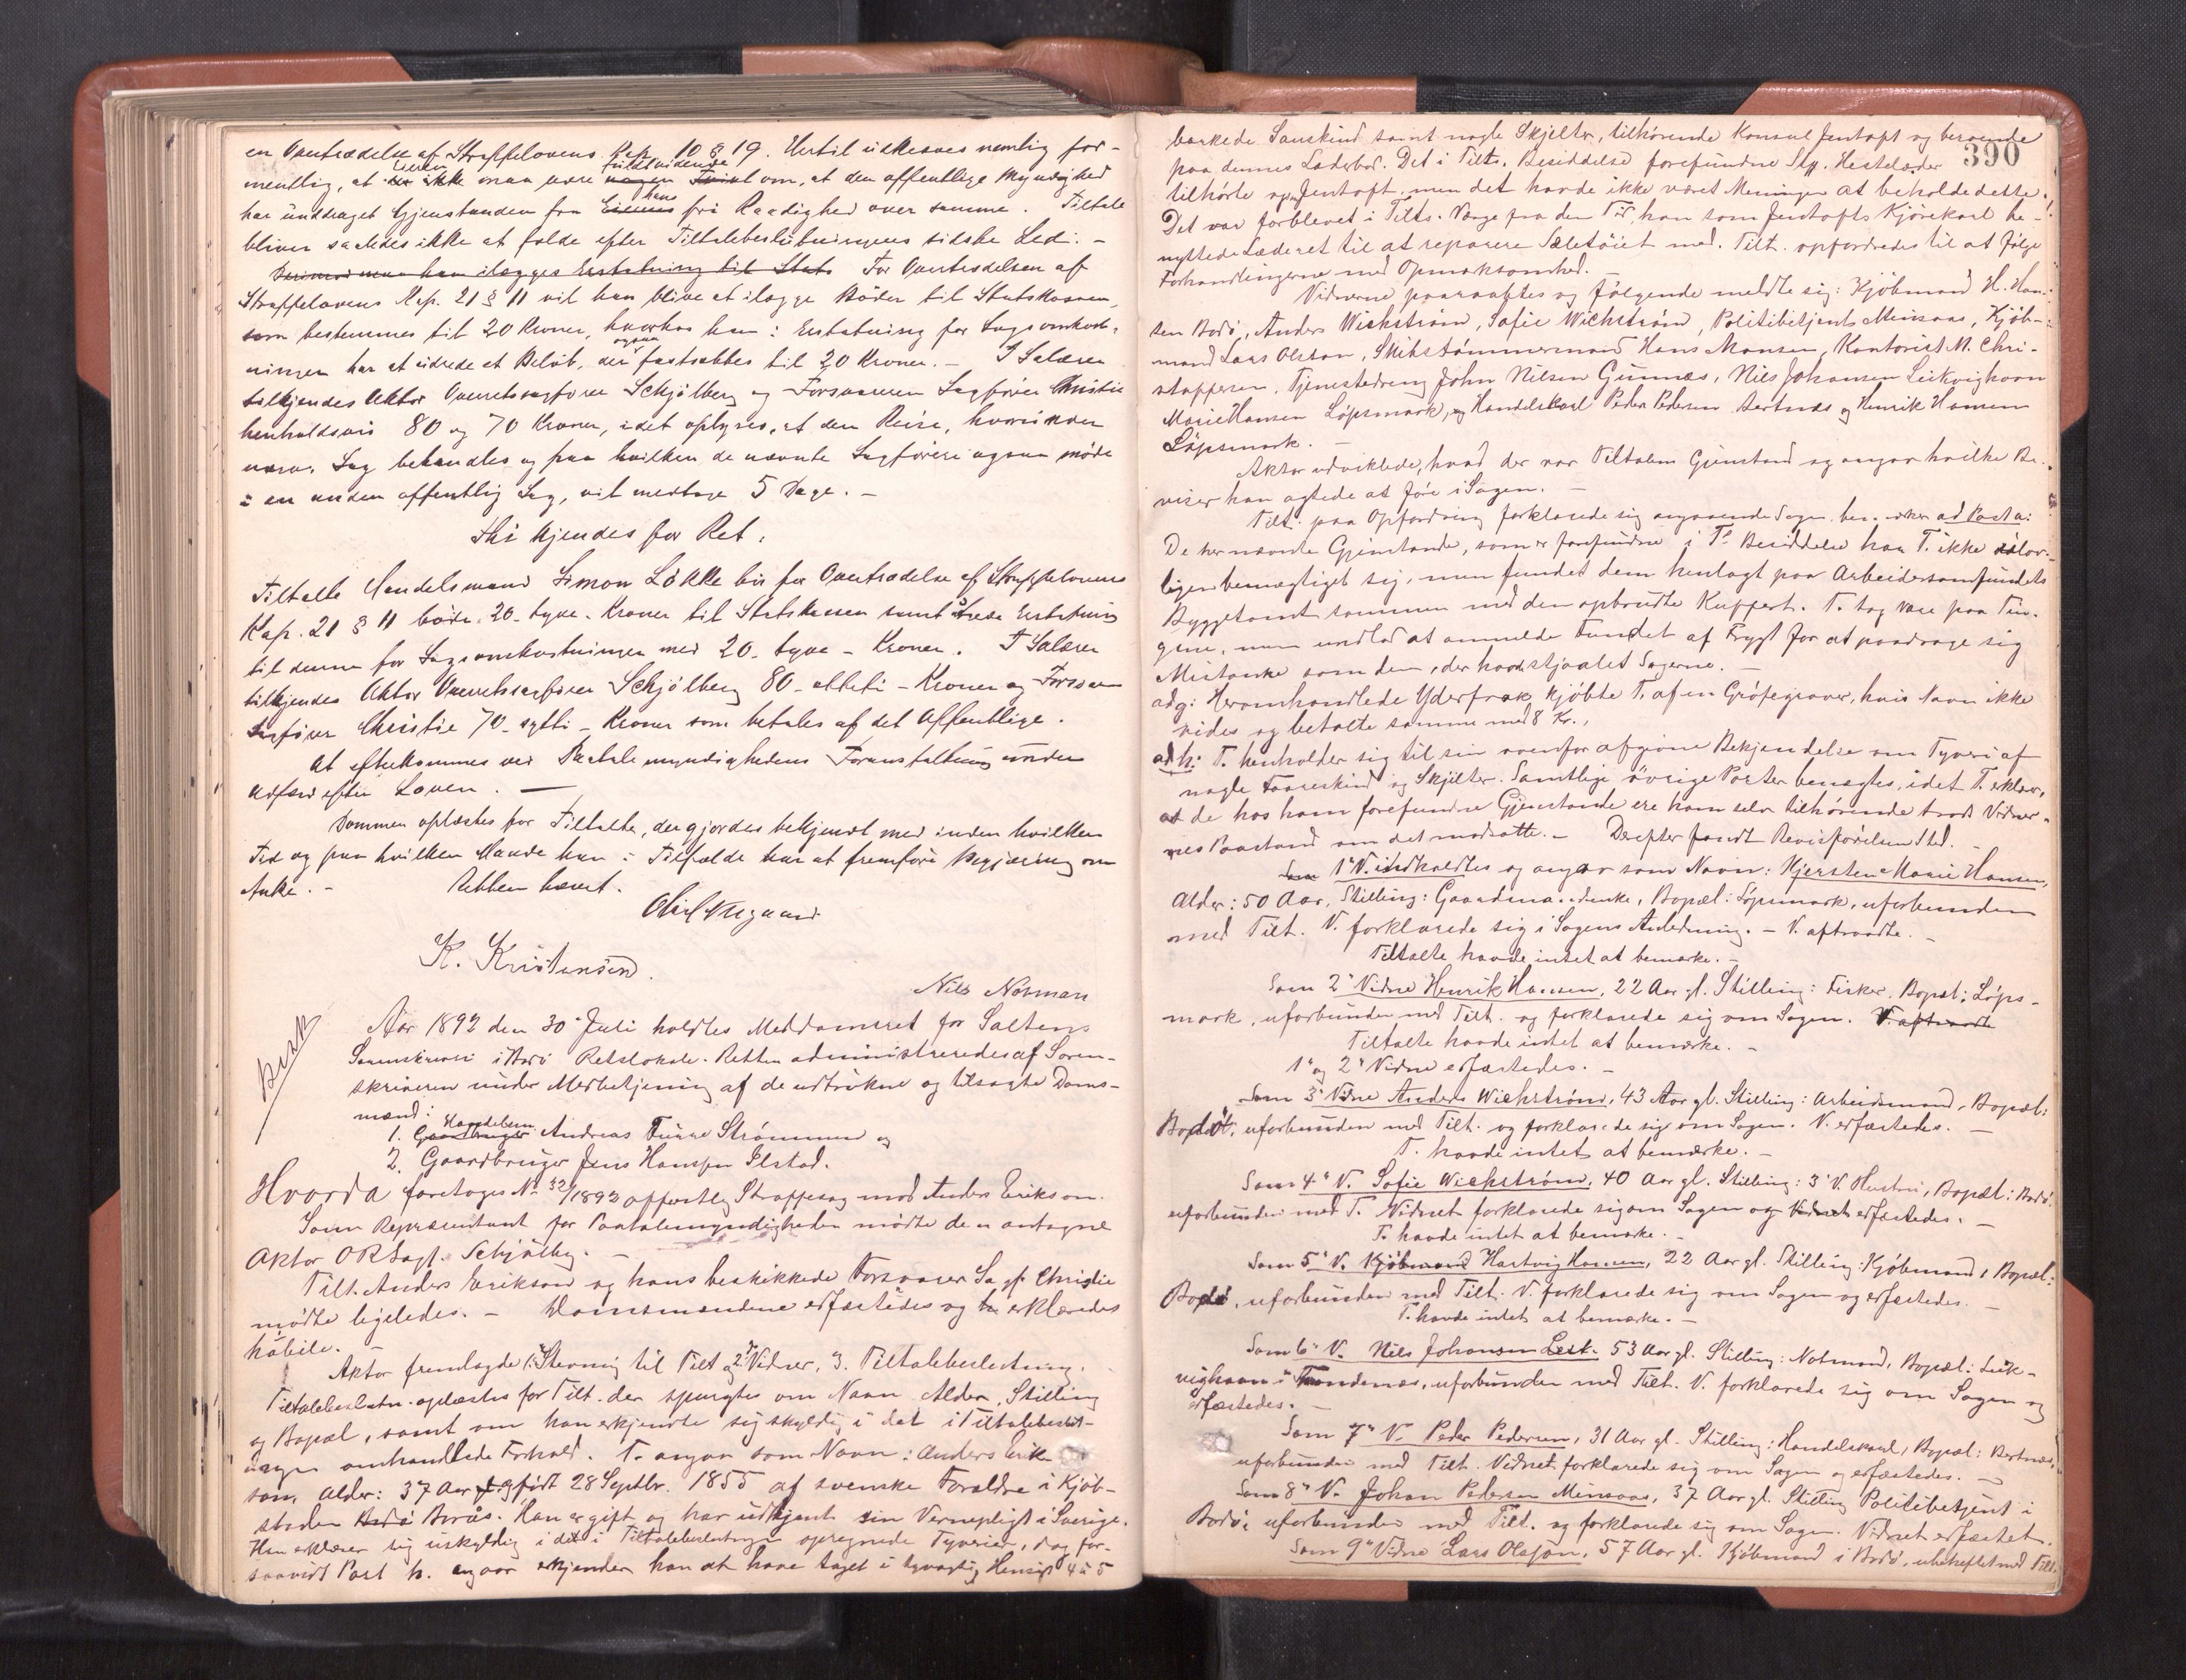 en Overtrædelse af Straffelovens Kap. 10 § 19. Hertil udkræves nemlig for-
mentlig, at ikke maa være om, at den offentlige Myndighed
har unddraget Gjenstanden fra hans fri Raadighed over samme. Tiltalte
bliver saaledes ikke at fælde efter Tiltalebeslutningens sidste Led. -
For Overtrædelsen af
Straffelovens Kap. 21 § 11 vil han blive at ilægge Bøder til Statskassen,
som bestemmes til 20 Kroner, hvorhos han i Erstatning for Sagsomkost-
ningen har at udrede et Beløb, der ogsaa fastsættes til 20 Kroner. - I Salærer
tilkjendes Aktor Overretssagfører Schjölberg og Forsvareren Sagfører Christie
henholdsvis 80 og 70 Kroner, idet oplyses, at den Reise, hvorunder
nærv. Sag behandles og paa hvilken de nævnte Sagførere ogsaa møde
i en anden offentlig Sag, vil medtage 5 Dage. -
Thi kjendes for Ret:
Tiltalte Handelsmand Simon Løkke bør for Overtrædelse af Straffelovens
Kap. 21 § 11 bøde 20 - tyve - Kroner til Statskassen samt udrede Erstatning
til denne for Sagsomkostninger med 20 - tyve - Kroner. I Salærer
tilkjendes Aktor Overretssagfører Schjölberg 80 - otteti - Kroner og Forsvar
Sagfører Christie 70 - sytti - Kroner som betales af det Offentlige.
At efterkommes ved Paatalemyndighedens Foranstaltning under
Adfærd efter Loven. -
Dommen oplæstes for Tiltalte, der gjordes bekjendt med inden hvilken
Tid og paa hvilken Maade han i Tilfælde har at fremføre Begjæring om
Anke. - Retten hævet.
K. Kristensen.
Nils Norman
Aar 1892 den 30' Juli holdtes Meddomsret for Saltens
Sorenskriveri i Bodø Retslokale. Retten administreredes af Soren-
skriveren under Medbetjening af de udtrukne og tilsagte Doms-
mænd:
1. Handelsm. Andreas Strømmen og
2. Gaardbruger Jens Hansen Ilstad.
Hvorda foretoges No 32/1892 offentlig Straffesag mod Anders Erikson.
Som Repræsentant for Paatalemyndigheden mødte den antagne
Aktor ORSagf. Schjølbg. -
Tilt. Anders Erikson og hans beskikkede Forsvarer Sagf. Christie
mødte ligeledes. - Domsmændene edfæstedes og erklæredes
habile. -
Aktor fremlagde 1. Stevning til Tilt. og 2. Vidner, 3. Tiltalebeslutning.
Tiltalebeslutn. oplæstes for Tilt. der spurgtes om Navn, Alder, Stilling
og Bopæl, samt om han erkjendte sig skyldig i det i Tiltalebeslut-
ningen omhandlede Forhold. T. angav som Navn: Anders Erik-
son, Alder: 37 Aar født 28 Septbr. 1855 af svenske Forældre i Kjøb-
staden Borås. Han er gift og har udtjent sin Vernepligt i Sverige.
Han erklærer sig uskyldig i det i Tiltalebeslutningen opregnede Tyverier, dog for-
saavidt Post h. angaar erkjender han at have taget i tyvagtig Hensigt 4 à 5
390
barkede Saueskind samt nogle Skjelter, tilhørende Konsul Jentoft og beroende
paa dennes Laderbod. Det i Tilts. Besiddelse forefundne Stk. Hestelæder
tilhørte og Jentoft, men det havde ikke været Meningen at beholde dette.
Det var forblevet i Tilts. Værge fra den Tid, han som Jentofts Kjørekarl be-
nyttede Læderet til at reparere Seletøiet med. Tilt. opfordredes til at følge
Forhandlingerne med Opmærksomhed. -
Vidnerne paaraabtes og følgende meldte sig: Kjøbmand H. Han-
sen Bodø, Anders Wickstrøm, Sofie Wickstrøm, Politibetjent Minsaas, Kjøb-
mand Lars Olsson, Skibstømmermand Hans Monsen, Kontorist M. Chri-
stoffersen, Tjenestedreng John Nilsen Gunnæs, Nils Johansen Leikvighavn
Marie Hansen Løpsmark, og Handelskarl Peder Pedersen Bertnæs og Henrik Hansen
Løpsmark. -
Aktor udviklede, hvad der var Tiltalens Gjenstand og angav hvilke Be-
viser han agtede at føre i Sagen. -
Tilt. paa Opfordring forklarede sig angaaende Sagen, bemærker ad Post a:
De her nævnte Gjenstande, som er forefundne i Ts Besiddelse har T. ikke ulov-
ligen bemægtiget sig, men fundet dem henlagt paa Arbeidersamfundets
Byggetomt sammen med den opbrudte Kuffert. T. tog vare paa Tin-
gene, men undlod at anmelde Fundet af Frygt for at paadrage sig
Mistanke som den, der havde stjaalet Sagerne. -
ad g: Heromhandlede Yderfrak kjøbte T. af en Grøfegraver, hvis Navn ikke
vides og betalte samme med 8 Kr.,
ad h: T. henholder sig til sin ovenfor afgivne Bekjendelse om Tyveri af
nogle Faareskind og Skjelter. Samtlige øvrige Poster benægtes, idet T. erklær.
at de hos ham forefundne Gjenstande ere ham selv tilhørende trods Vidner-
nes Paastand om det modsatte. - Derefter fandt Bevisførelsen Sted. -
Som 1' V. indkaldtes og angav som Navn: Kjersten Marie Hansen,
Alder: 50 Aar, Stilling: Gaardmandsenke, Bopæl: Løpsmark, uforbunden
med Tilt. V. forklarede sig i Sagens Anledning. - V. aftraadte. -
Tiltalte havde intet at bemærke. -
Som 2' Vidne Henrik Hansen, 22 Aar gl. Stilling: Fisker, Bopæl: Løps-
mark, uforbunden med Tilt. og forklarede sig om Sagen. V. aftraadte
Tiltalte havde intet at bemærke. -
1' og 2' Vidne edfæstedes. -
Som 3' Vidne Anders Wickstrøm, 43 Aar gl. Stilling: Arbeidsmand, Bopæl:
Bodø, uforbunden med Tilt. og forklarede sig om Sagen. V. edfæstedes. -
T. havde intet at bemærke. -
Som 4' V. Sofie Wickstrøm, 40 Aar gl. Stilling: 3' V. Hustru, Bopæl: Bodø,
uforbunden med T. Vidnet forklarede sig om Sagen og Vidnet edfæstedes. -
T. havde intet at bemærke. -
Som 5' V. Kjøbmand Hartvig Hansen, 22 Aar gl. Stilling: Kjøbmand, Bopæl:
Bodø, uforbunden med Tilt. V. forklarede sig om Sagen og edfæstedes. -
T. havde intet at bemærke. -
Som 6' V. Nils Johansen Leik. 53 Aar gl. Stilling: Notmand, Bopæl: Leik-
vighavn i Trondenæs, uforbunden med Tilt. V. forklarede sig om Sagen og
edfæstedes. -
Som 7' V. Peder Pedersen, 31 Aar gl. Stilling: Handelskarl, Bopæl: Bertnæs,
uforbunden med Tilt. Vidnet forklarede sig om Sagen og edfæstedes. -
Som 8' V. Johan Pedersen Minsaas, 37 Aar gl. Stilling Politibetjent i
Bodø, uforbunden med Tilt. og forklarede sig om Sagen. Vidnet edfæstet.
Som 9' Vidne Lars Olsson, 57 Aar gl. Kjøbmand i Bodø, ubeheftet med Tilt.